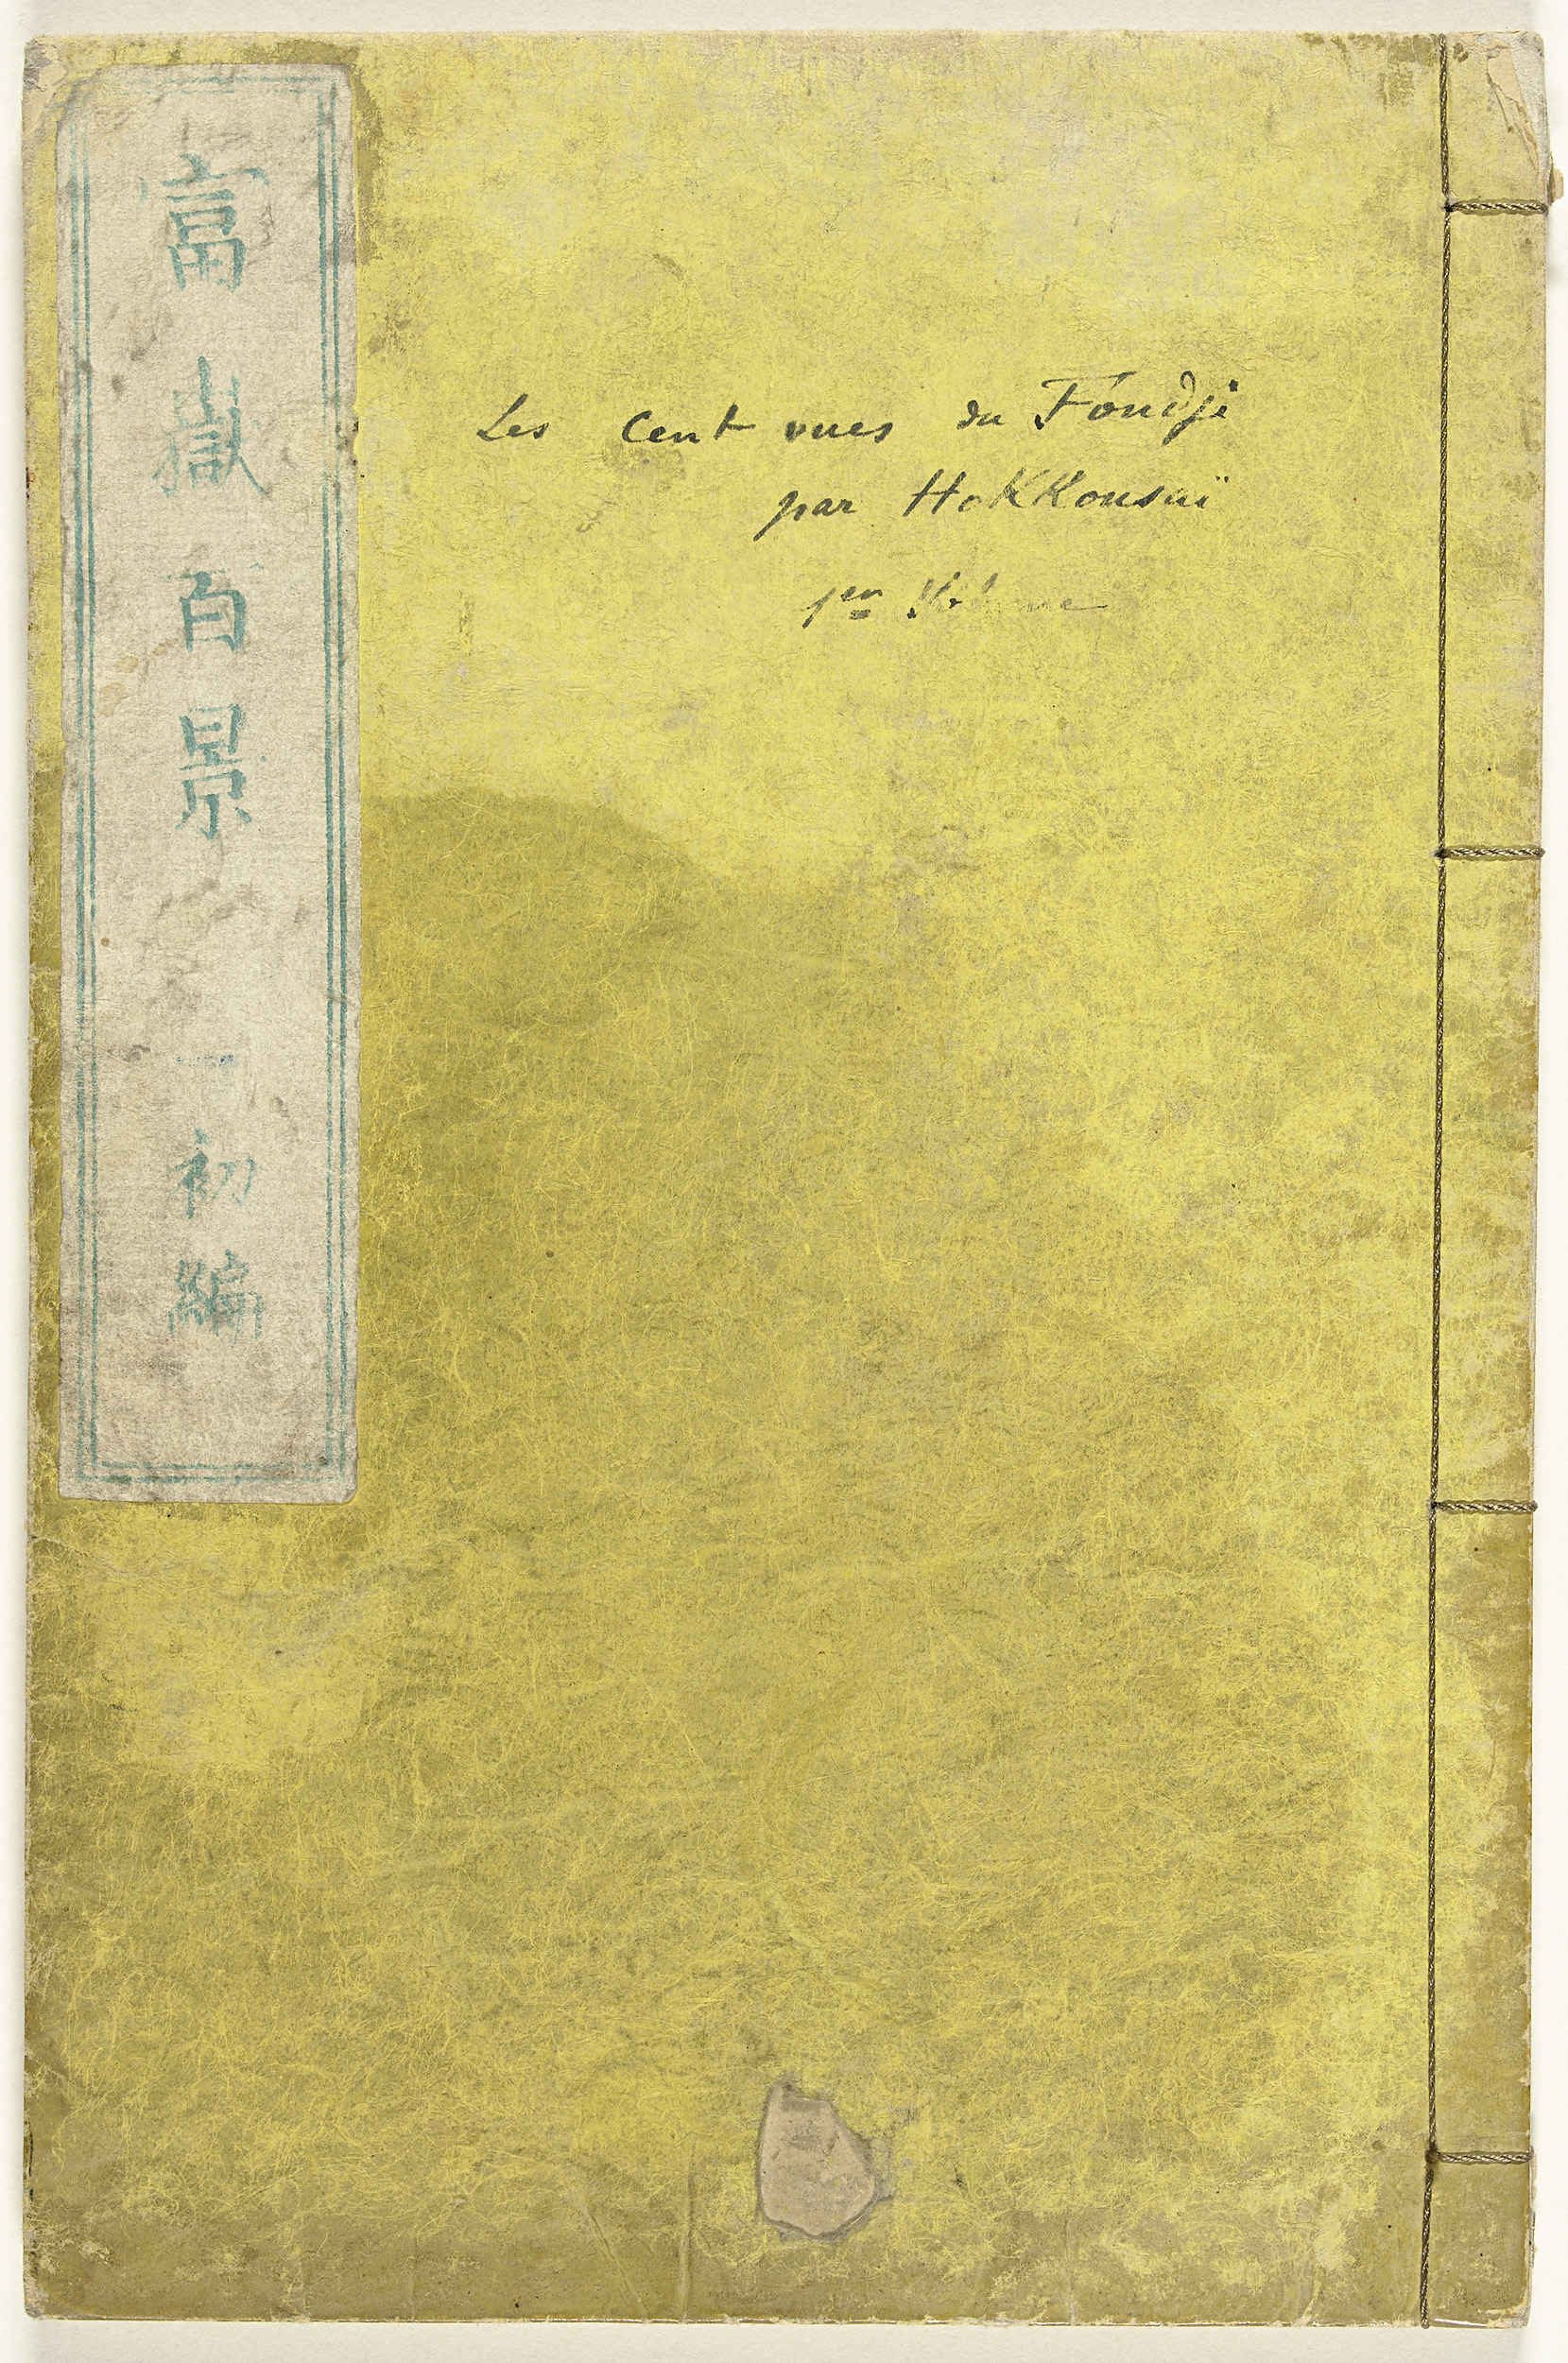 富嶽百景 一 初編
Les Cent vues du Foudji
par HoKKousaï
1er Volume